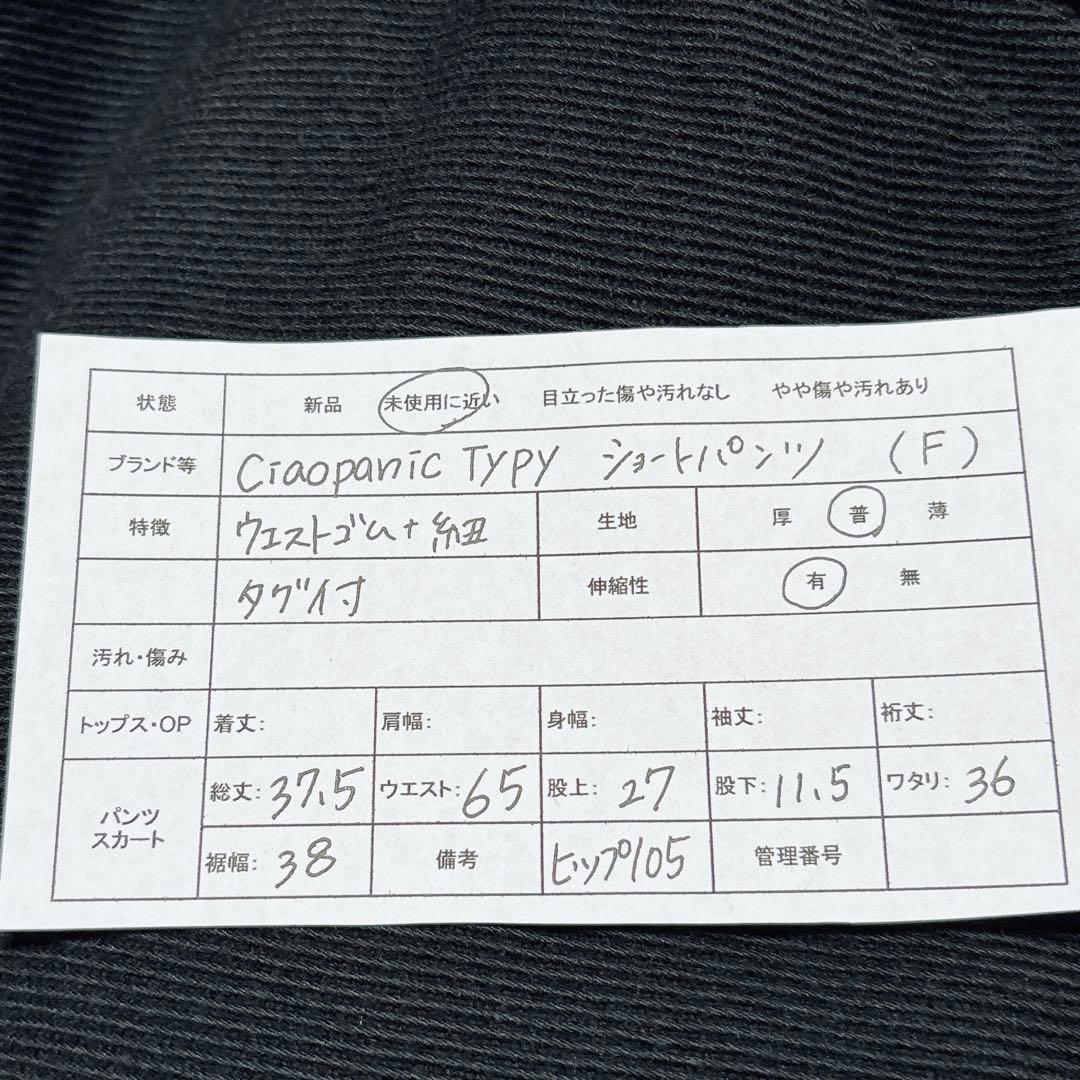 状態 新品 未使用に近い 目立った傷や汚れなし やや傷や汚れあり
ブランド等 Ciaopanic Typy ショートパンツ (F)
特徴 ウエストゴム+紐 生地 厚 普 薄
タグ付 伸縮性 有 無
汚れ・傷み
トップス・OP 着丈: 肩幅: 身幅: 袖丈: 裄丈:
パンツ スカート 総丈: 37.5 ウエスト: 65 股上: 27 股下: 11.5 ワタリ: 36
裾幅: 38 備考 ヒップ105 管理番号